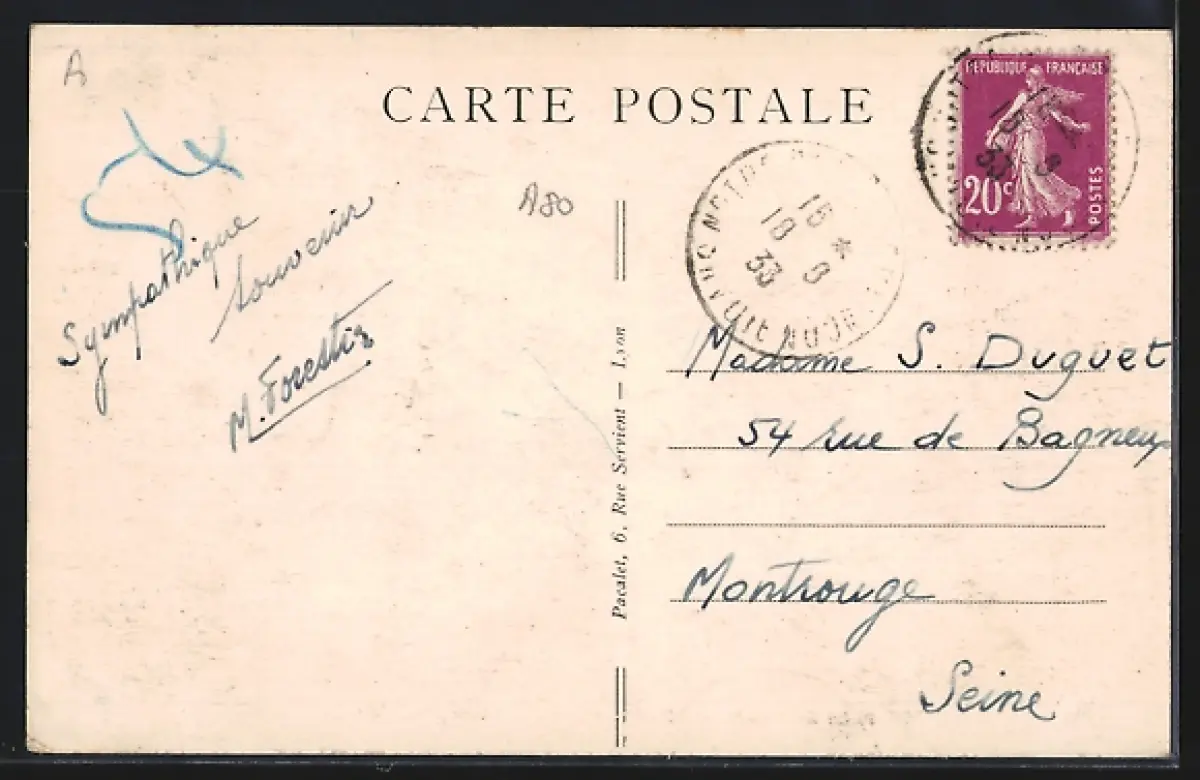 A
CARTE POSTALE
REPUBLIQUE FRANCAISE
20c
POSTES
A80
15 *
18 8
33
Sympathique
souvenir
M. Forestier
Pacalet, 6, Rue Servient — Lyon
Madame S. Duguet
54 rue de Bagneux
Montrouge
Seine